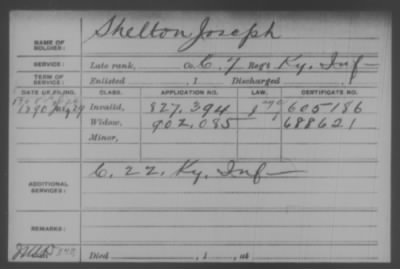 Shelton Joseph
NAME OF SOLDIER:
SERVICE: Late rank, Co. C. 7 Reg't Ky. Inf
TERM OF SERVICE: Enlisted , 1 Discharged
DATE OF FILING. CLASS. APPLICATION NO. LAW. CERTIFICATE NO.
1890 July 29 Invalid, 827.394 605186
Widow, 902.085 688621
Minor,
ADDITIONAL SERVICES: C. 22. Ky. Inf
REMARKS:
Died , 1 , at